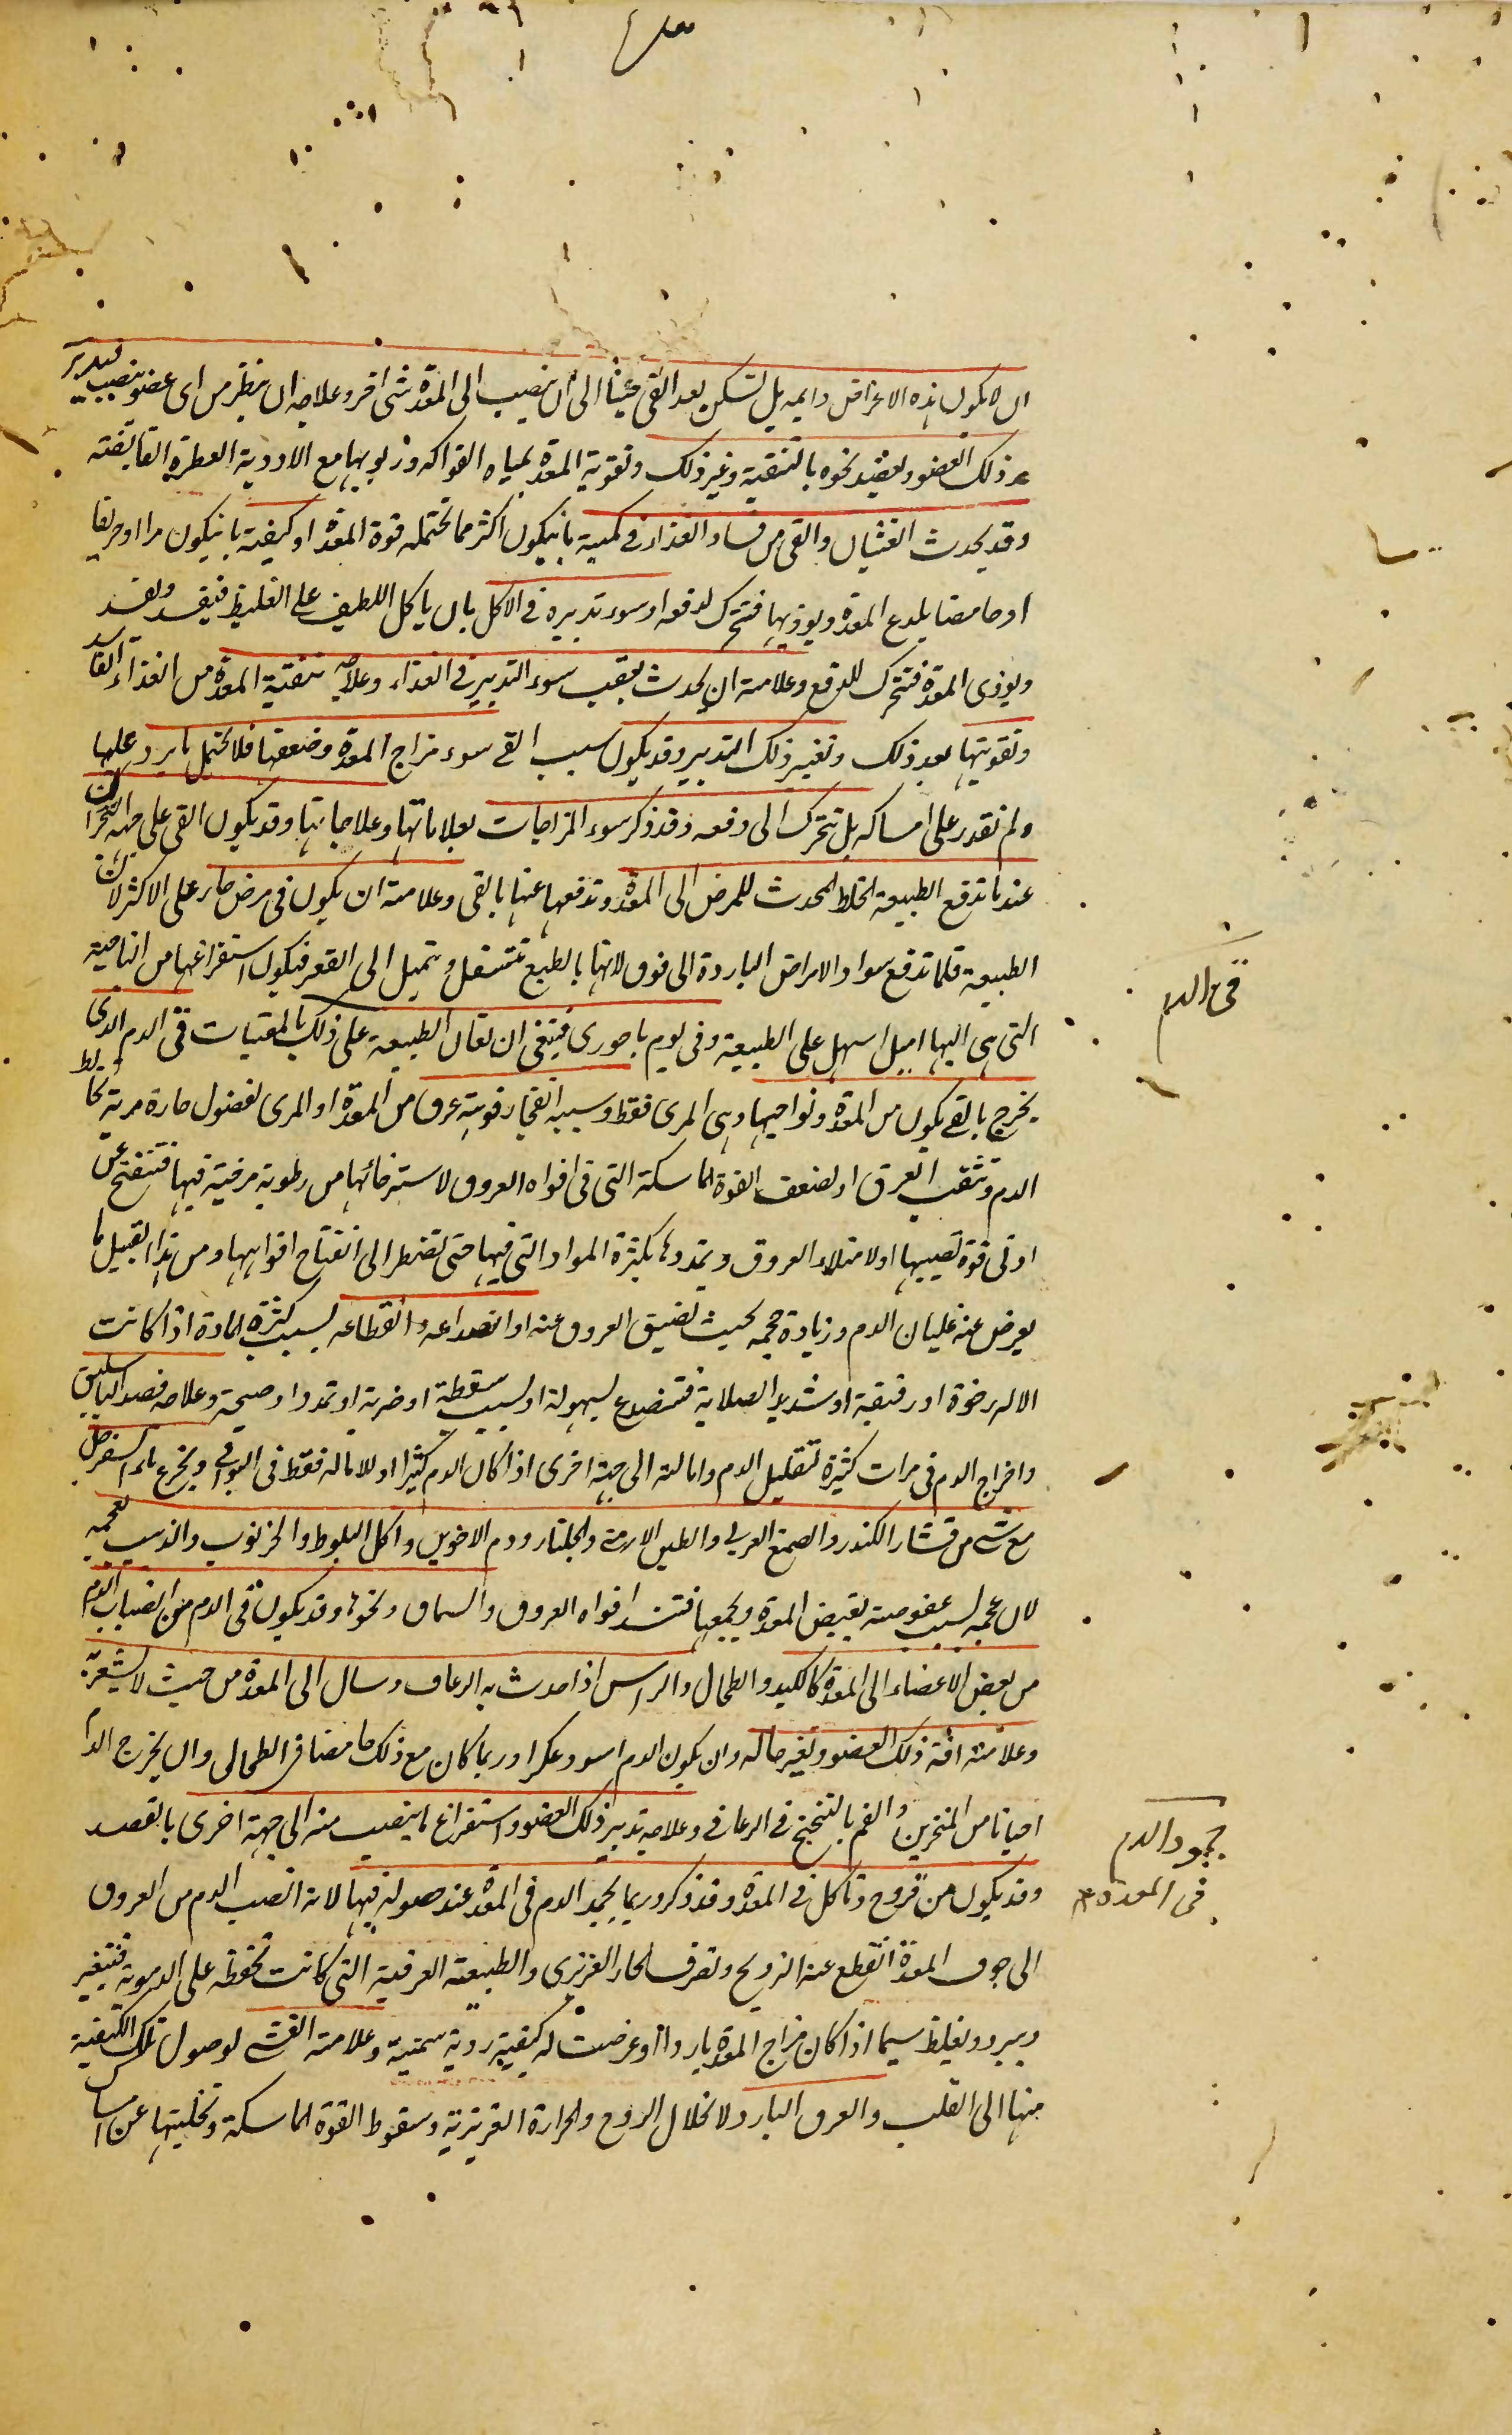 ان لا يكون هذه الاعراض دايمه بل تسكن بعد القى حينا الى ان ينصب الى المعدة شى اخر وعلاجه ان ينظر من اى عضو ينصب فيدبر
ذلك العضو ويصد نحوه بالتنقية وغير ذلك وتقوية المعدة بمياه الفواكه وربوبها مع الادوية العطرة القابضة
وقد يحدث الغثيان والقى من فساد الغذاء فى كمية بانيكون اكثر مما تحتمله قوة المعدة او كيفية بانيكون مرا او حريفا
او حامضا يلدع المعدة ويوذيها فتتحرك لدفعه او سوء تدبيره فى الاكل بان ياكل اللطيف على الغليظ فيفسد ويفسد
ويوذى المعدة فتتحرك للدفع وعلامته ان يحدث بعقب سوء التدبير فى الغذاء وعلاجه تنقية المعدة من الغذاء الفاسد
وتقويتها بعد ذلك وتغيير ذلك التدبير وقد يكون سبب القى سوء مزاج المعدة وضعفها فلا تحتمل ما يرد عليها
ولم تقدر على امساكه بل تتحرك الى دفعه وقد ذكر سوء المزاجات بعلاماتها وعلاجاتها وقد يكون القى على جهة البحران
عند ما تدفع الطبيعة الخلط المحدث للمرض الى المعدة وتدفعها عنها بالقى وعلامته ان يكون فى مرض حار على الاكثر لان
الطبيعة قلما تدفع مواد الامراض الباردة الى فوق لانها بالطبع تتسفل وتميل الى القعر فيكون استفراغها من الناحية
التى هى اليها اميل اسهل على الطبيعة وفى يوم باحورى فينبغى ان تعان الطبيعة على ذلك بالمقيات قى الدم الذى
يخرج بالقى يكون من المعدة ونواحيها وهى المرى فقط وسببه انفجار فوهة عرق من المعدة او المرى لفضول حارة مرية تخالط
الدم وتثقب العرق او لضعف القوة الماسكة التى فى افواه العروق لاسترخائها من رطوبة مرخية فيها فتنفتح عن
ادنى قوة تصيبها او لامتلاء العروق وتمددها بكثرة المواد التى فيها حتى تضطر الى انفتاح افواهها ومن هذا القبيل ما
يعرض عند غليان الدم وزيادة حجمه بحيث تضيق العروق عنه او انصداعه وانقطاعه بسبب كثرة المادة اذا كانت
الاله رخوة او رقيقة او شديد الصلابة فتنصدع بسهولة او بسبب سقطة او ضربة او تمدد او صيحة وعلاجه فصد الباسليق
واخراج الدم فى مرات كثيرة لتقليل الدم وامالته الى جهة اخرى اذا كان الدم كثيرا او للامالة فقط فى البواقى ويجرع ماء السفرجل
مع شى من قشار الكندر والصمغ العربى والطين الارمنى والجلنار ودم الاخوين واكل البلوط والخرنوب والزبيب بعجمه
لان عجمه لسبب عفوصته يقبض المعدة ويجمعها فتنسد افواه العروق والسماق ونحوها وقد يكون قى الدم من انصباب الدم
من بعض الاعضاء الى المعدة كالكبد والطحال والراس اذا حدث به الرعاف وسال الى المعدة من حيث لا يشعر به
وعلامته افة ذلك العضو وتغير حاله وان يكون الدم اسود عكرا وربما كان مع ذلك حامضا فى الطحالى وان يخرج الدم
احيانا من المنخرين والفم بالتنخع فى الرعافى وعلاجه تدبير ذلك العضو واستفراغ ما ينصب منه الى جهة اخرى بالفصد
وقد يكون من قروح وتاكل فى المعدة وقد ذكر وربما يجمد الدم فى المعدة عند حصوله فيها لانه انصب الدم من العروق
الى جوف المعدة انقطع عنه الترويح وتصرف الحار الغريزى والطبيعة العرقية التى كانت تحفظه على الدموية فتتغير
ويبرد ويغلظ سيما اذا كان مزاج المعدة باردا او عرضت له كيفية ردية سمية وعلامته الغشى لوصول تلك الكيفية
منها الى القلب والعرق البارد لانحلال الروح والحرارة الغريزية وسقوط القوة الماسكة وتخليتها عن امساك
قى الدم
جمود الدم
فى المعدة